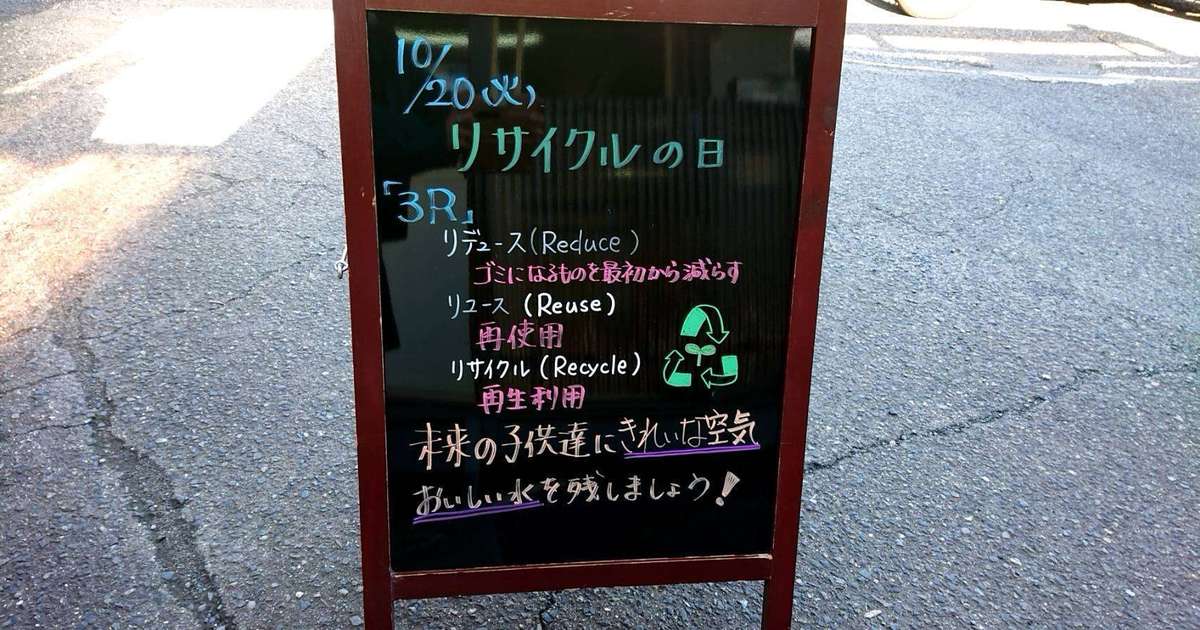 10/20(火)
リサイクルの日
「3R」
リデュース(Reduce)
ゴミになるものを最初から減らす
リユース(Reuse)
再使用
リサイクル(Recycle)
再生利用
未来の子供達にきれいな空気
おいしい水を残しましょう!